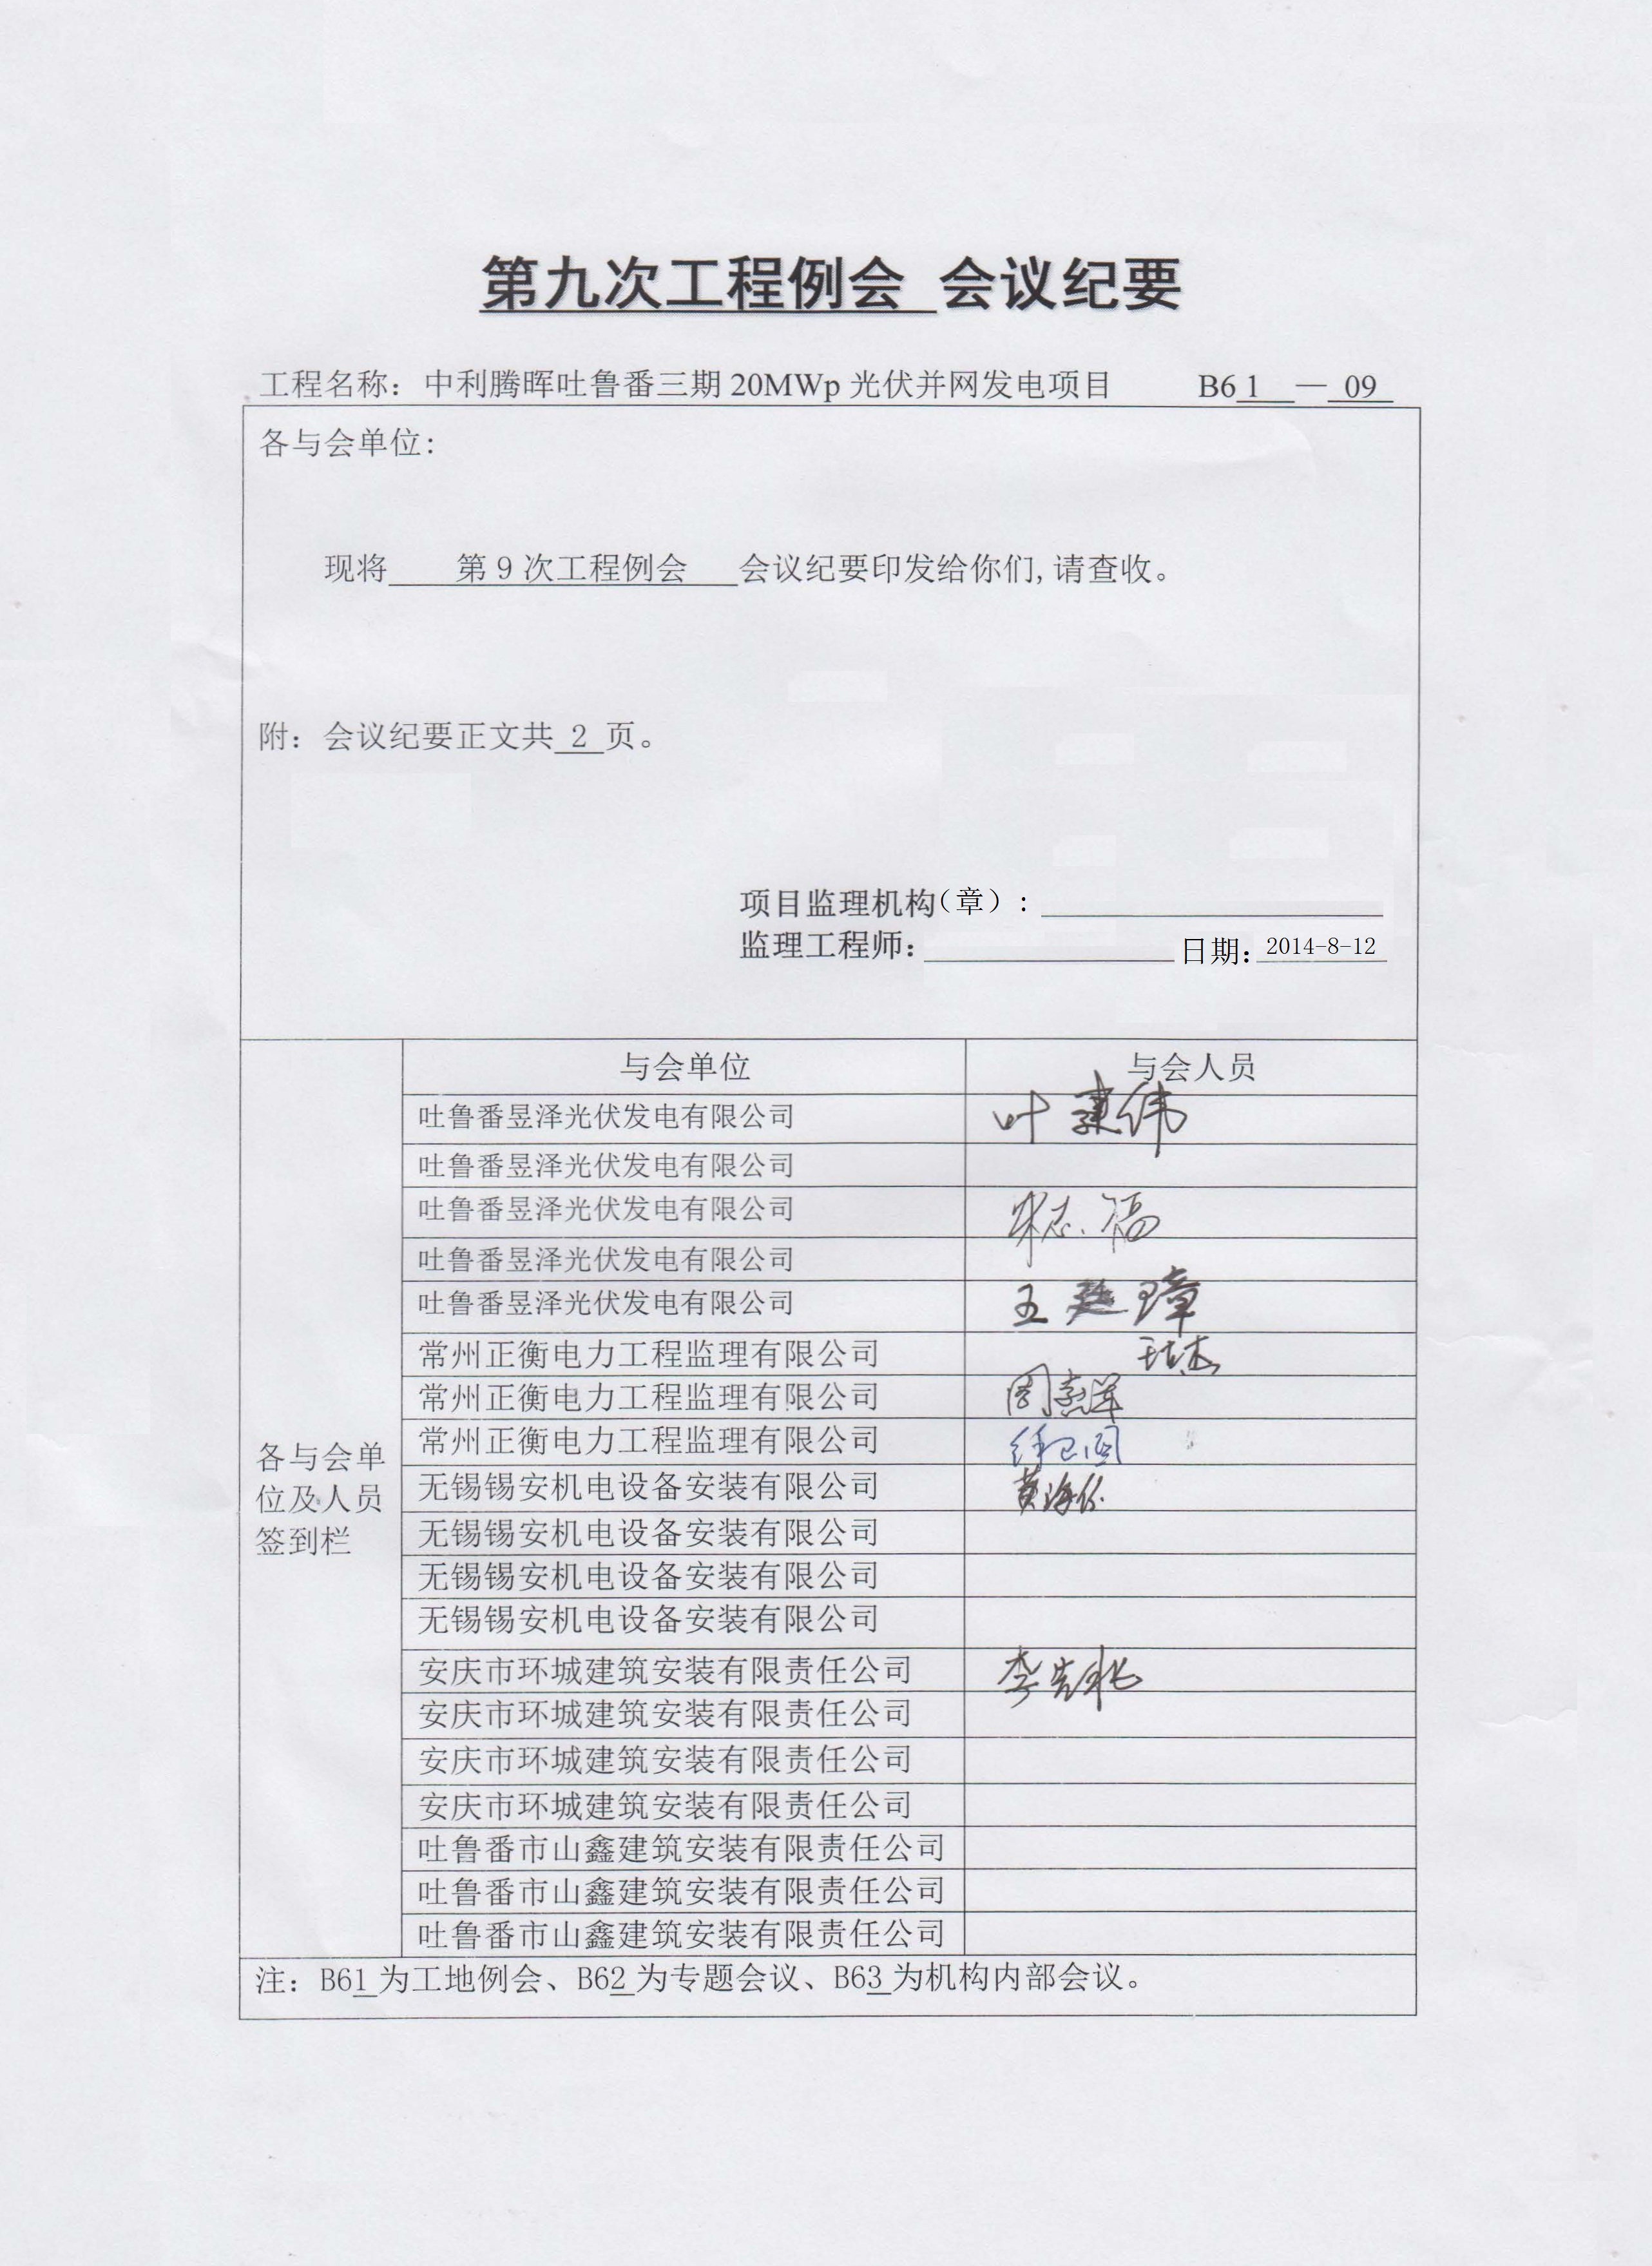 第九次工程例会 会议纪要
工程名称：中利腾晖吐鲁番三期20MWp光伏并网发电项目 B61 — 09
各与会单位：
现将 第9次工程例会 会议纪要印发给你们,请查收。
附：会议纪要正文共 2 页。
项目监理机构（章）:
监理工程师： 日期：2014-8-12
各与会单位及人员签到栏
与会单位 与会人员
吐鲁番昱泽光伏发电有限公司 叶建伟
吐鲁番昱泽光伏发电有限公司
吐鲁番昱泽光伏发电有限公司 宋志福
吐鲁番昱泽光伏发电有限公司
吐鲁番昱泽光伏发电有限公司 王 璋
常州正衡电力工程监理有限公司
常州正衡电力工程监理有限公司 周
常州正衡电力工程监理有限公司
无锡锡安机电设备安装有限公司 黄海
无锡锡安机电设备安装有限公司
无锡锡安机电设备安装有限公司
无锡锡安机电设备安装有限公司
安庆市环城建筑安装有限责任公司 李
安庆市环城建筑安装有限责任公司
安庆市环城建筑安装有限责任公司
安庆市环城建筑安装有限责任公司
吐鲁番市山鑫建筑安装有限责任公司
吐鲁番市山鑫建筑安装有限责任公司
吐鲁番市山鑫建筑安装有限责任公司
注：B61 为工地例会、B62 为专题会议、B63 为机构内部会议。